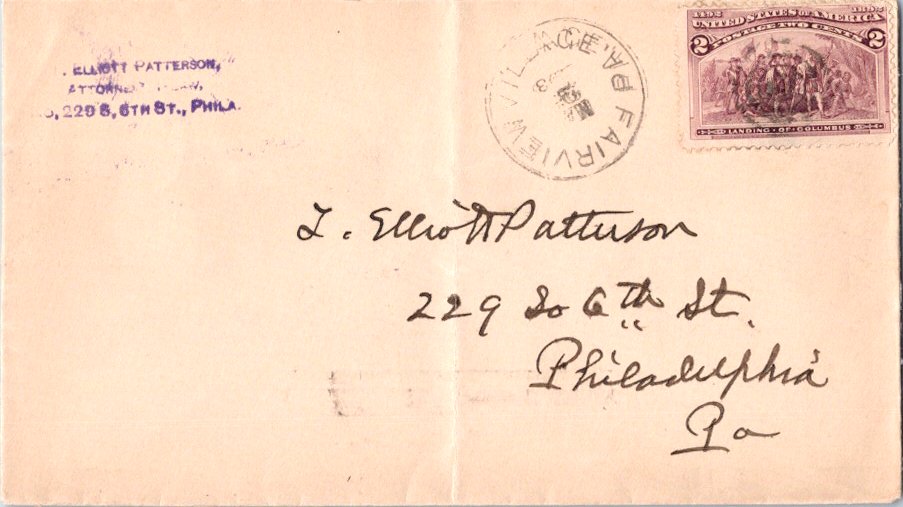 . ELLIOTT PATTERSON,
ATTORNEY
229 S, 6TH ST., PHILA.
FAIRVIEW VILLAGE, PA.
1492 1892
UNITED STATES OF AMERICA
POSTAGE TWO CENTS
2 2
LANDING OF COLUMBUS
T. Elliott Patterson
229 So 6th St.
Philadelphia
Pa